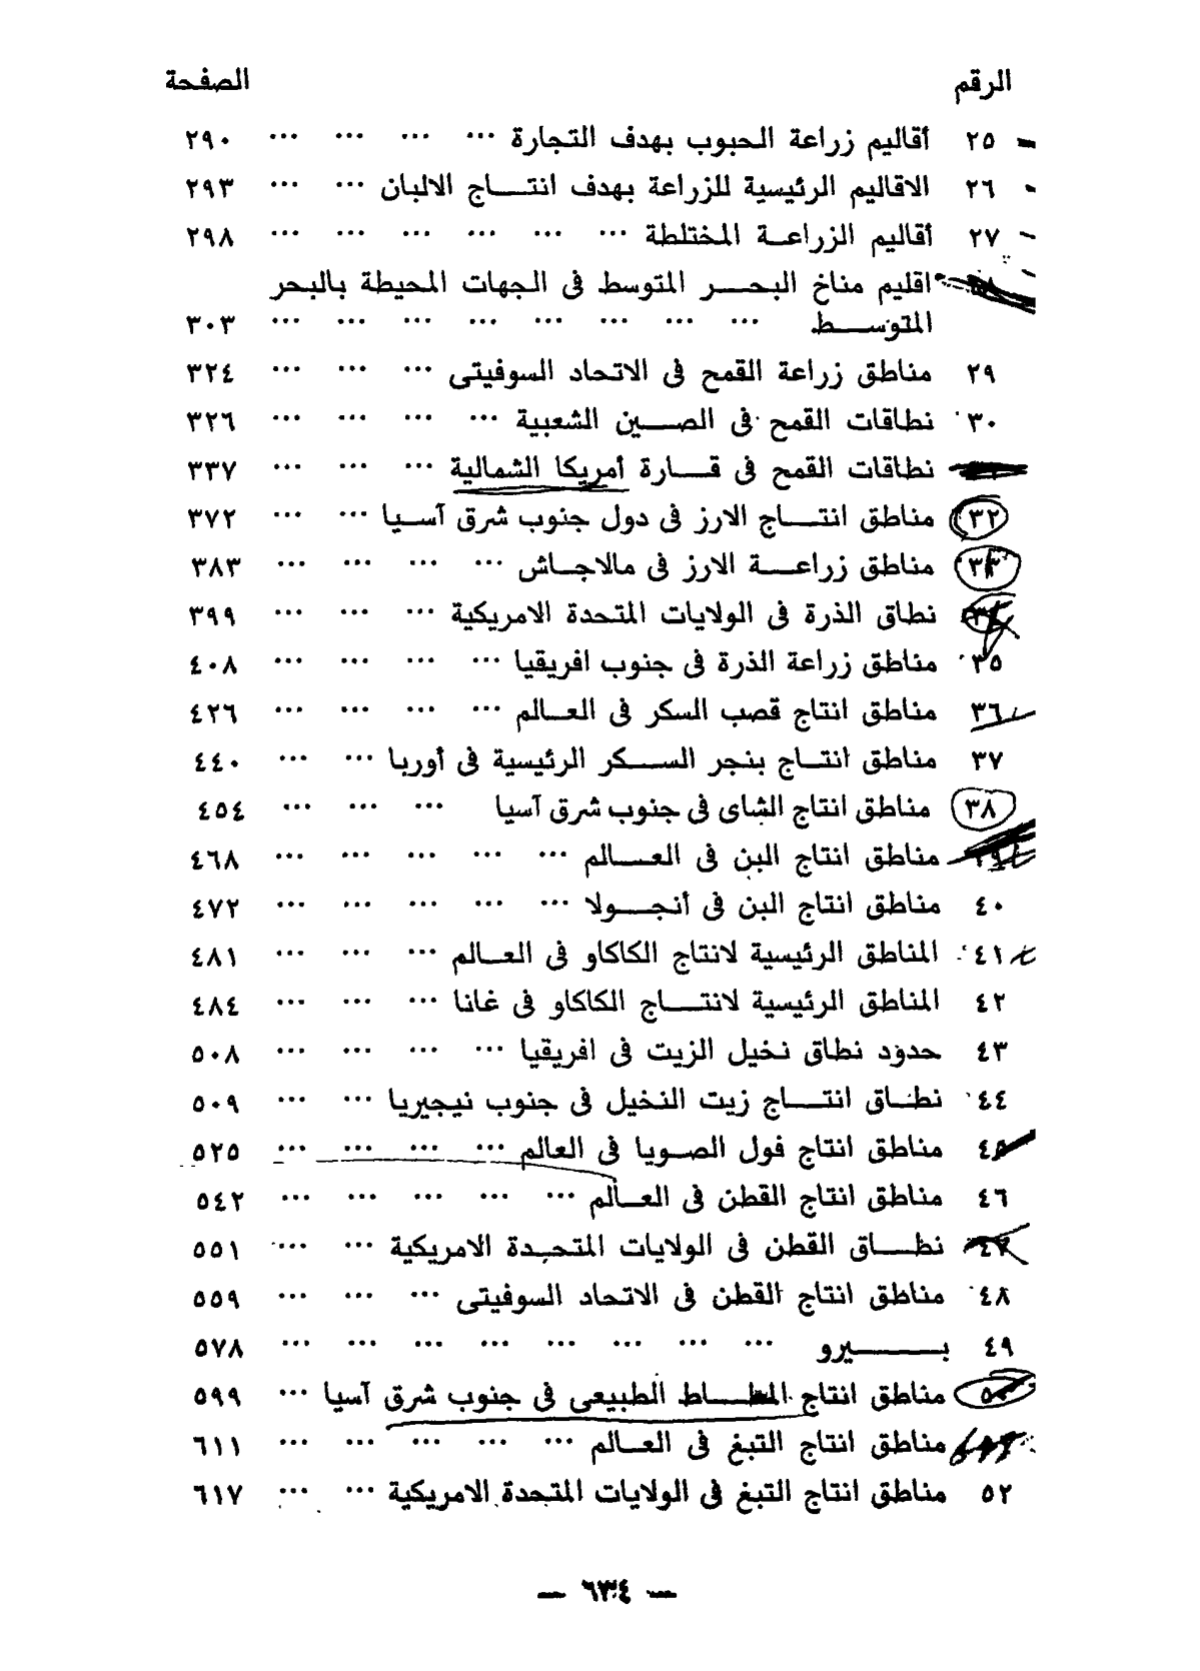 الرقم الصفحة
٢٥ أقاليم زراعة الحبوب بهدف التجارة ... ... ... ... ٢٩٠
٢٦ الاقاليم الرئيسية للزراعة بهدف انتـــاج الالبان ... ... ٢٩٣
٢٧ أقاليم الزراعـة المختلطة ... ... ... ... ... ... ٢٩٨
اقليم مناخ البحــر المتوسط فى الجهات المحيطة بالبحر
المتوســـط ... ... ... ... ... ... ... ... ٣٠٣
٢٩ مناطق زراعة القمح فى الاتحاد السوفيتى ... ... ... ٣٢٤
٣٠ نطاقات القمح فى الصـــين الشعبية ... ... ... ... ٣٢٦
نطاقات القمح فى قـــارة أمريكا الشمالية ... ... ... ٣٣٧
٣٢ مناطق انتـــاج الارز فى دول جنوب شرق آسـيا ... ... ٣٧٢
٣٣ مناطق زراعـــة الارز فى مالاجـاش ... ... ... ... ٣٨٣
٣٤ نطاق الذرة فى الولايات المتحدة الامريكية ... ... ... ٣٩٩
٣٥ مناطق زراعة الذرة فى جنوب افريقيا ... ... ... ... ٤٠٨
٣٦ مناطق انتاج قصب السكر فى العـالم ... ... ... ... ٤٢٦
٣٧ مناطق انتـاج بنجر الســكر الرئيسية فى أوربا ... ... ٤٤٠
٣٨ مناطق انتاج الشاى فى جنوب شرق آسيا ... ... ... ٤٥٤
٣٩ مناطق انتاج البن فى العـــالم ... ... ... ... ... ٤٦٨
٤٠ مناطق انتاج البن فى أنجـــولا ... ... ... ... ... ٤٧٢
٤١ المناطق الرئيسية لانتاج الكاكاو فى العـالم ... ... ... ٤٨١
٤٢ المناطق الرئيسية لانتـــاج الكاكاو فى غانا ... ... ... ٤٨٤
٤٣ حدود نطاق نخيل الزيت فى افريقيا ... ... ... ... ٥٠٨
٤٤ نطـاق انتـــاج زيت النخيل فى جنوب نيجيريا ... ... ٥٠٩
٤٥ مناطق انتاج فول الصـويا فى العالم ... ... ... ... ٥٢٥
٤٦ مناطق انتاج القطن فى العـالم ... ... ... ... ... ٥٤٢
٤٧ نطـــاق القطن فى الولايات المتحـدة الامريكية ... ... ٥٥١
٤٨ مناطق انتاج القطن فى الاتحاد السوفيتى ... ... ... ٥٥٩
٤٩ بـــــيرو ... ... ... ... ... ... ... ... ٥٧٨
٥٠ مناطق انتاج المطـــاط الطبيعى فى جنوب شرق آسيا ... ٥٩٩
مناطق انتاج التبغ فى العـالم ... ... ... ... ... ٦١١
٥٢ مناطق انتاج التبغ فى الولايات المتحدة الامريكية ... ... ٦١٧
— ٦٣٤ —